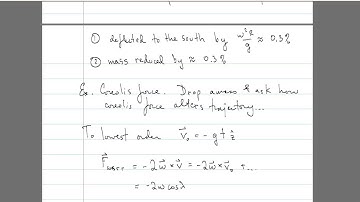 ① deflected to the south by ω²R/g ≈ 0.3%
② mass reduced by ≈ 0.3%
Ex. Coriolis force. Drop & ask how
coriolis force alters trajectory...
To lowest order v⃗₀ = -gt ẑ
F⃗ = -2 ω⃗ × v⃗ = -2 ω⃗ × v⃗₀ + ...
= -2ω cosλ